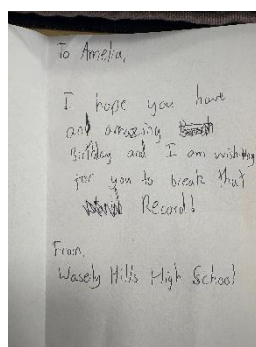 To Amelia,
I hope you have
and amazing
Birthday and I am wishing
for you to break that
Record!
From,
Wasely Hills High School